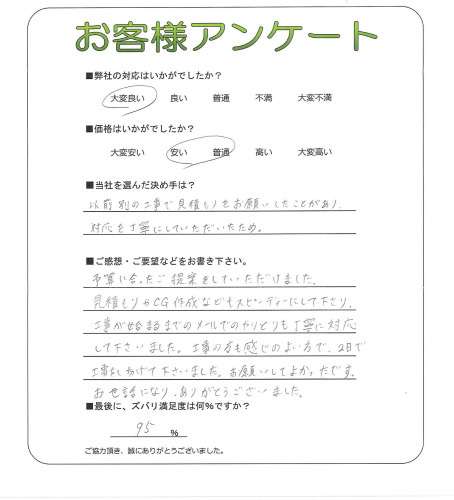 お客様アンケート
■弊社の対応はいかがでしたか?
大変良い 良い 普通 不満 大変不満
■価格はいかがでしたか?
大変安い 安い 普通 高い 大変高い
■当社を選んだ決め手は?
以前別の工事で見積もりをお願いしたことがあり、
対応を丁寧にしていただいたため。
■ご感想・ご要望などをお書き下さい。
予算に合ったご提案をしていただけました。
見積もりやCG作成などもスピーディーにして下さり、
工事が始まるまでのメールでのやりとりも丁寧に対応
して下さいました。工事の方も感じのよい方で、2日で
工事をしあげて下さいました。お願いしてよかったです。
お世話になり、ありがとうございました。
■最後に、ズバリ満足度は何%ですか?
95 %
ご協力頂き、誠にありがとうございました。